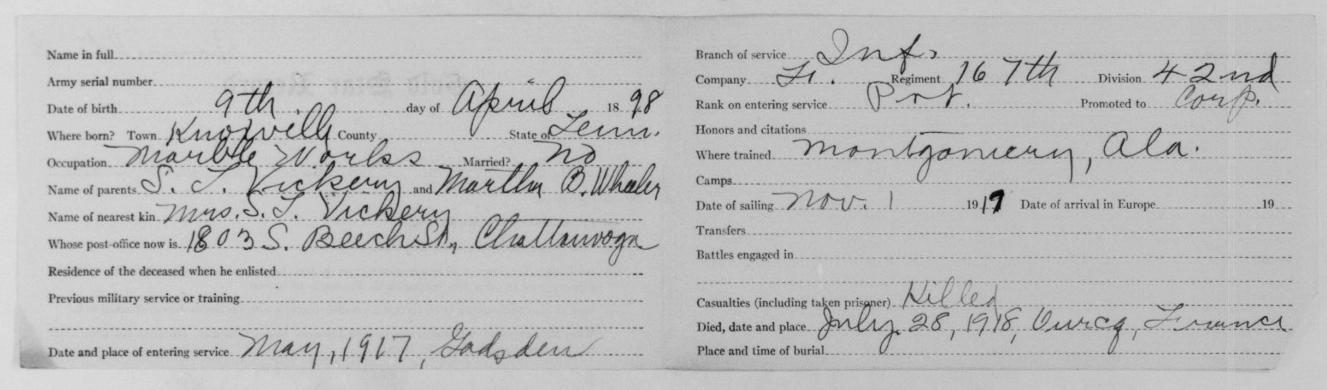 Name in full
Army serial number
Date of birth 9th. day of April 1898
Where born? Town Knoxville County State of Tenn.
Occupation Marble Works Married? No
Name of parents S. L. Vickery and Martha B. Wheeler
Name of nearest kin Mrs. S. L. Vickery
Whose post-office now is 1803 S. Beech St., Chattanooga
Residence of the deceased when he enlisted
Previous military service or training
Date and place of entering service May, 1917, Gadsden
Branch of service Inf.
Company Regiment 167th Division 42nd
Rank on entering service Pvt. Promoted to Corp.
Honors and citations
Where trained Montgomery, Ala.
Camps
Date of sailing Nov. 1 1917 Date of arrival in Europe 19
Transfers
Battles engaged in
Casualties (including taken prisoner) Killed
Died, date and place July 28, 1918, Ourcq, France
Place and time of burial